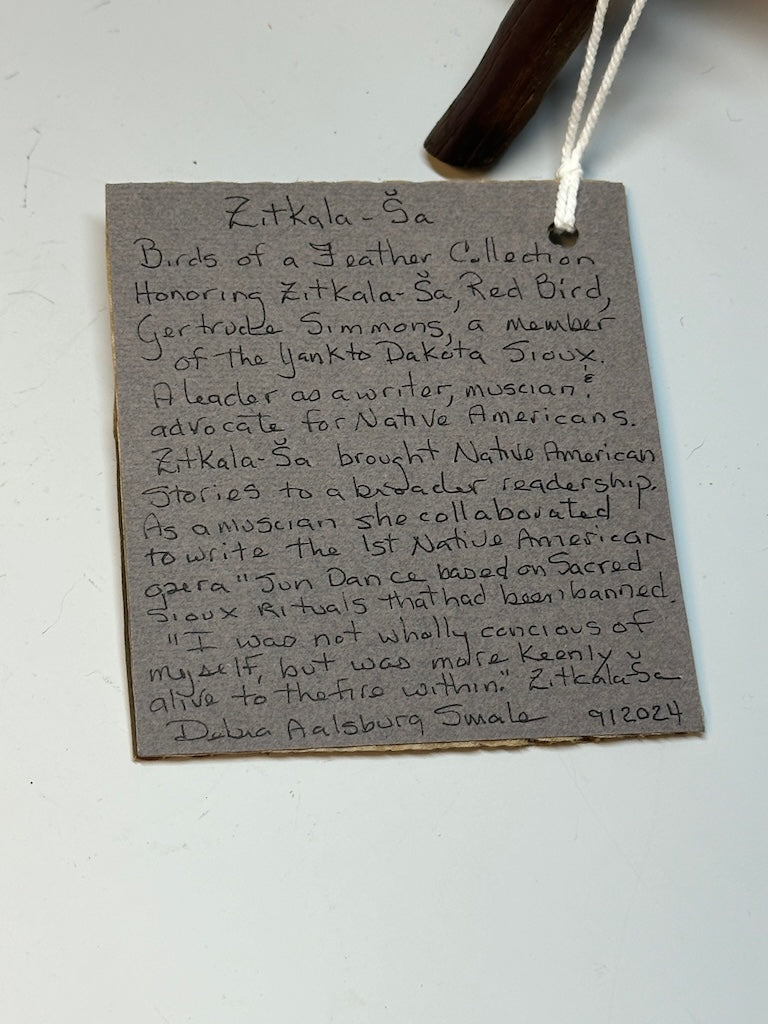 Zitkala-Ša
Birds of a Feather Collection
Honoring Zitkala-Ša, Red Bird,
Gertrude Simmons, a member
of the Yankto Dakota Sioux.
A leader as a writer, muscian &
advocate for Native Americans.
Zitkala-Ša brought Native American
Stories to a broader readership.
As a muscian she collaborated
to write the 1st Native American
opera "Sun Dance based on Sacred
Sioux Rituals that had been banned.
"I was not wholly concious of
myself, but was more Keenly
alive to the fire within." Zitkala Ša
Debra Aalsburg Smale 912024